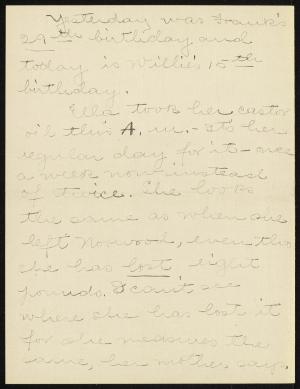 Yesterday was Frank's
29th birthday and
today is Willie's 15th
birthday.
Ella took her castor
oil this A.m. - its her
regular day for it - once
a week now instead
of twice. She looks
the same as when she
left Norwood, even tho
she has lost eight
pounds. I can't see
where she has lost it
for she measures the
same, her mother says.